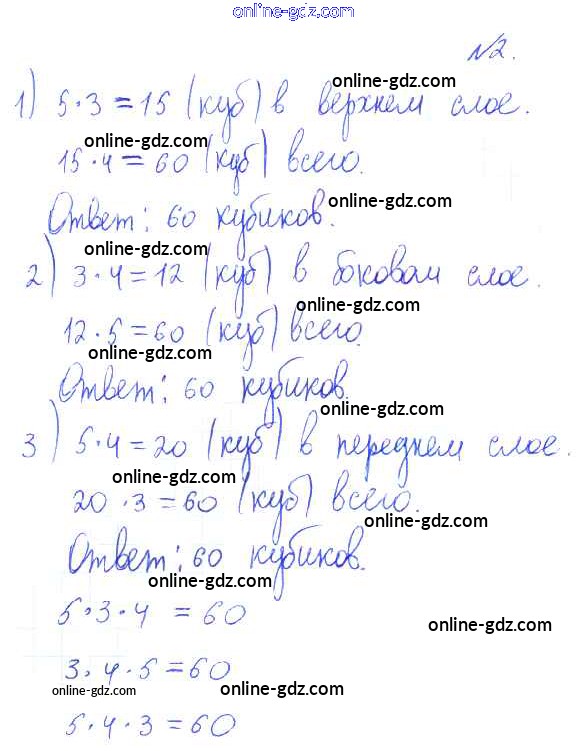 online-gdz.com
№2.
online-gdz.com
1) 5·3=15 (куб) в верхнем слое.
online-gdz.com
15·4=60 (куб) всего.
online-gdz.com
Ответ: 60 кубиков.
online-gdz.com
2) 3·4=12 (куб) в боковом слое.
online-gdz.com
12·5=60 (куб) всего.
online-gdz.com
Ответ: 60 кубиков.
online-gdz.com
3) 5·4=20 (куб) в переднем слое.
online-gdz.com
20·3=60 (куб) всего.
online-gdz.com
Ответ: 60 кубиков.
online-gdz.com
5·3·4=60
online-gdz.com
3·4·5=60
online-gdz.com
online-gdz.com
5·4·3=60